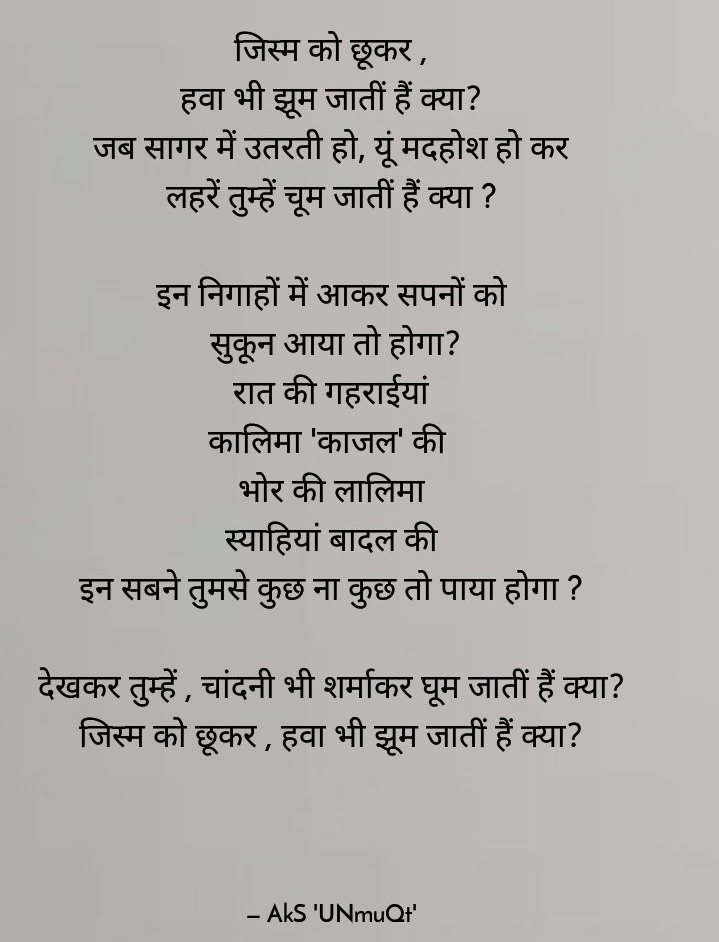 जिस्म को छूकर ,
हवा भी झूम जातीं हैं क्या?
जब सागर में उतरती हो, यूं मदहोश हो कर
लहरें तुम्हें चूम जातीं हैं क्या ?
इन निगाहों में आकर सपनों को
सुकून आया तो होगा?
रात की गहराईयां
कालिमा 'काजल' की
भोर की लालिमा
स्याहियां बादल की
इन सबने तुमसे कुछ ना कुछ तो पाया होगा ?
देखकर तुम्हें , चांदनी भी शर्माकर घूम जातीं हैं क्या?
जिस्म को छूकर , हवा भी झूम जातीं हैं क्या?
– AkS 'UNmuQt'